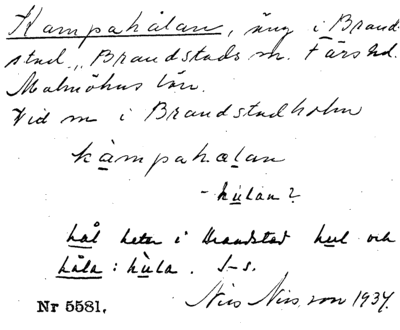 Kämpahålan, äng i Brand-
stad, Brandstads sn. Färs hd.
Malmöhus län.
Vid sn i Brandstadholm
kàmpahålan
- húlan?
hål heter i Brandstad hul och
håla: hùla. I-s.
Nr 5581. Nils Nilsson 1934.